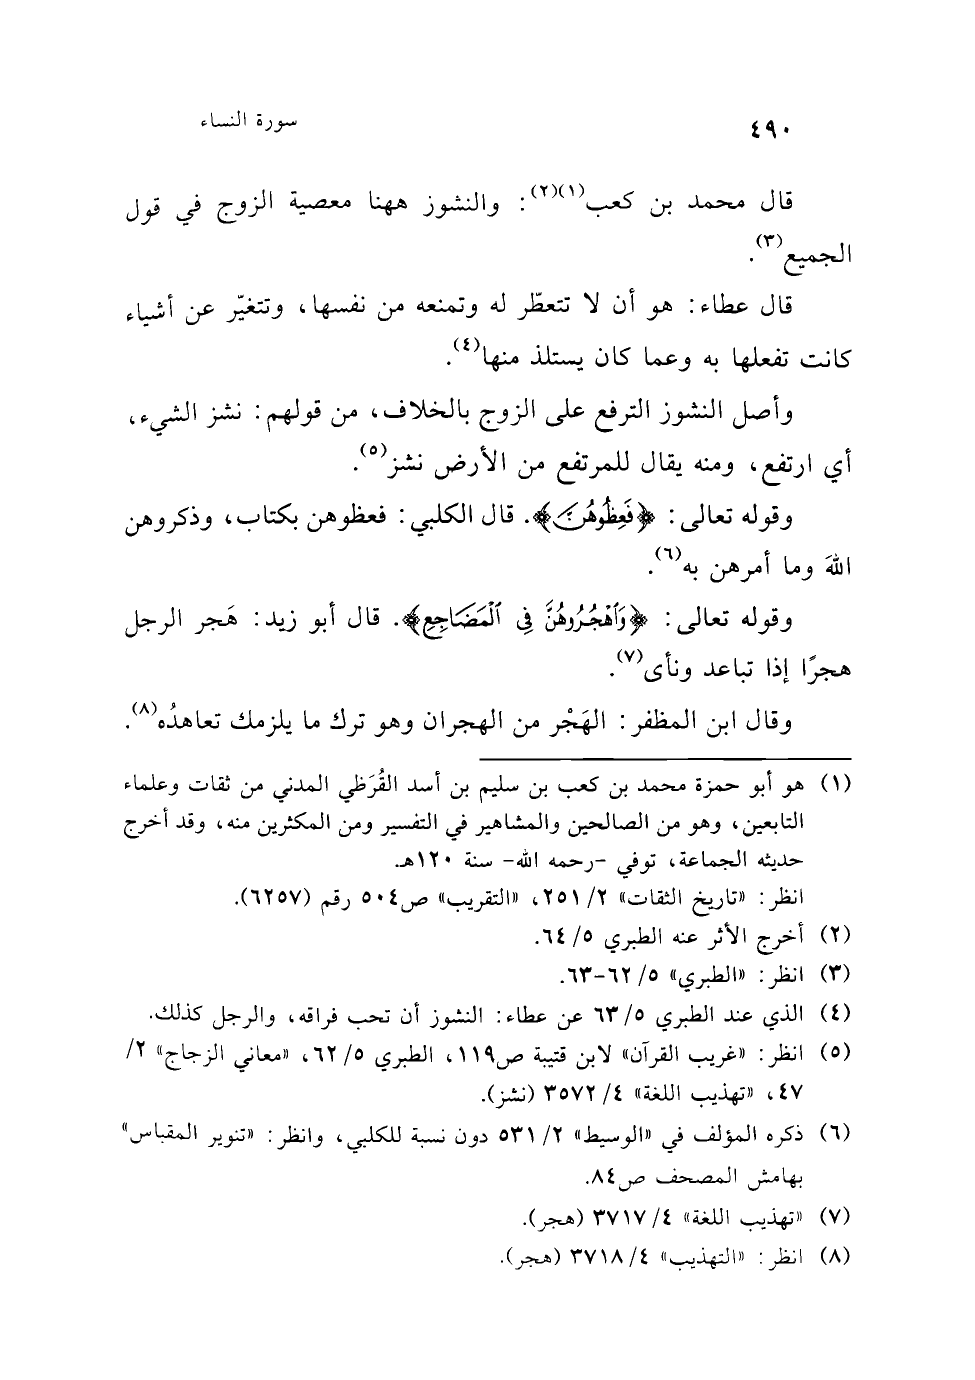 ٤٩٠ سورة النساء
قال محمد بن كعب(١)(٢): والنشوز ههنا معصية الزوج في قول
الجميع(٣).
قال عطاء: هو أن لا تتعطّر له وتمنعه من نفسها، وتتغيّر عن أشياء
كانت تفعلها به وعما كان يستلذ منها(٤).
وأصل النشوز الترفع على الزوج بالخلاف، من قولهم: نشز الشيء،
أي ارتفع، ومنه يقال للمرتفع من الأرض نشز(٥).
وقوله تعالى: ﴿فَعِظُوهُنَّ﴾. قال الكلبي: فعظوهن بكتاب، وذكروهن
اللهَ وما أمرهن به(٦).
وقوله تعالى: ﴿وَٱهْجُرُوهُنَّ فِى ٱلْمَضَاجِعِ﴾. قال أبو زيد: هَجر الرجل
هجرًا إذا تباعد ونأى(٧).
وقال ابن المظفر: الهَجْر من الهجران وهو ترك ما يلزمك تعاهدُه(٨).
(١) هو أبو حمزة محمد بن كعب بن سليم بن أسد القُرَظي المدني من ثقات وعلماء
التابعين، وهو من الصالحين والمشاهير في التفسير ومن المكثرين منه، وقد أخرج
حديثه الجماعة، توفي -رحمه الله- سنة ١٢٠هـ.
انظر: «تاريخ الثقات» ٢/ ٢٥١، «التقريب» ص٥٠٤ رقم (٦٢٥٧).
(٢) أخرج الأثر عنه الطبري ٥/ ٦٤.
(٣) انظر: «الطبري» ٥/ ٦٢-٦٣.
(٤) الذي عند الطبري ٥/ ٦٣ عن عطاء: النشوز أن تحب فراقه، والرجل كذلك.
(٥) انظر: «غريب القرآن» لابن قتيبة ص١١٩، الطبري ٥/ ٦٢، «معاني الزجاج» ٢/
٤٧، «تهذيب اللغة» ٤/ ٣٥٧٢ (نشز).
(٦) ذكره المؤلف في «الوسيط» ٢/ ٥٣١ دون نسبة للكلبي، وانظر: «تنوير المقباس»
بهامش المصحف ص٨٤.
(٧) «تهذيب اللغة» ٤/ ٣٧١٧ (هجر).
(٨) انظر: «التهذيب» ٤/ ٣٧١٨ (هجر).